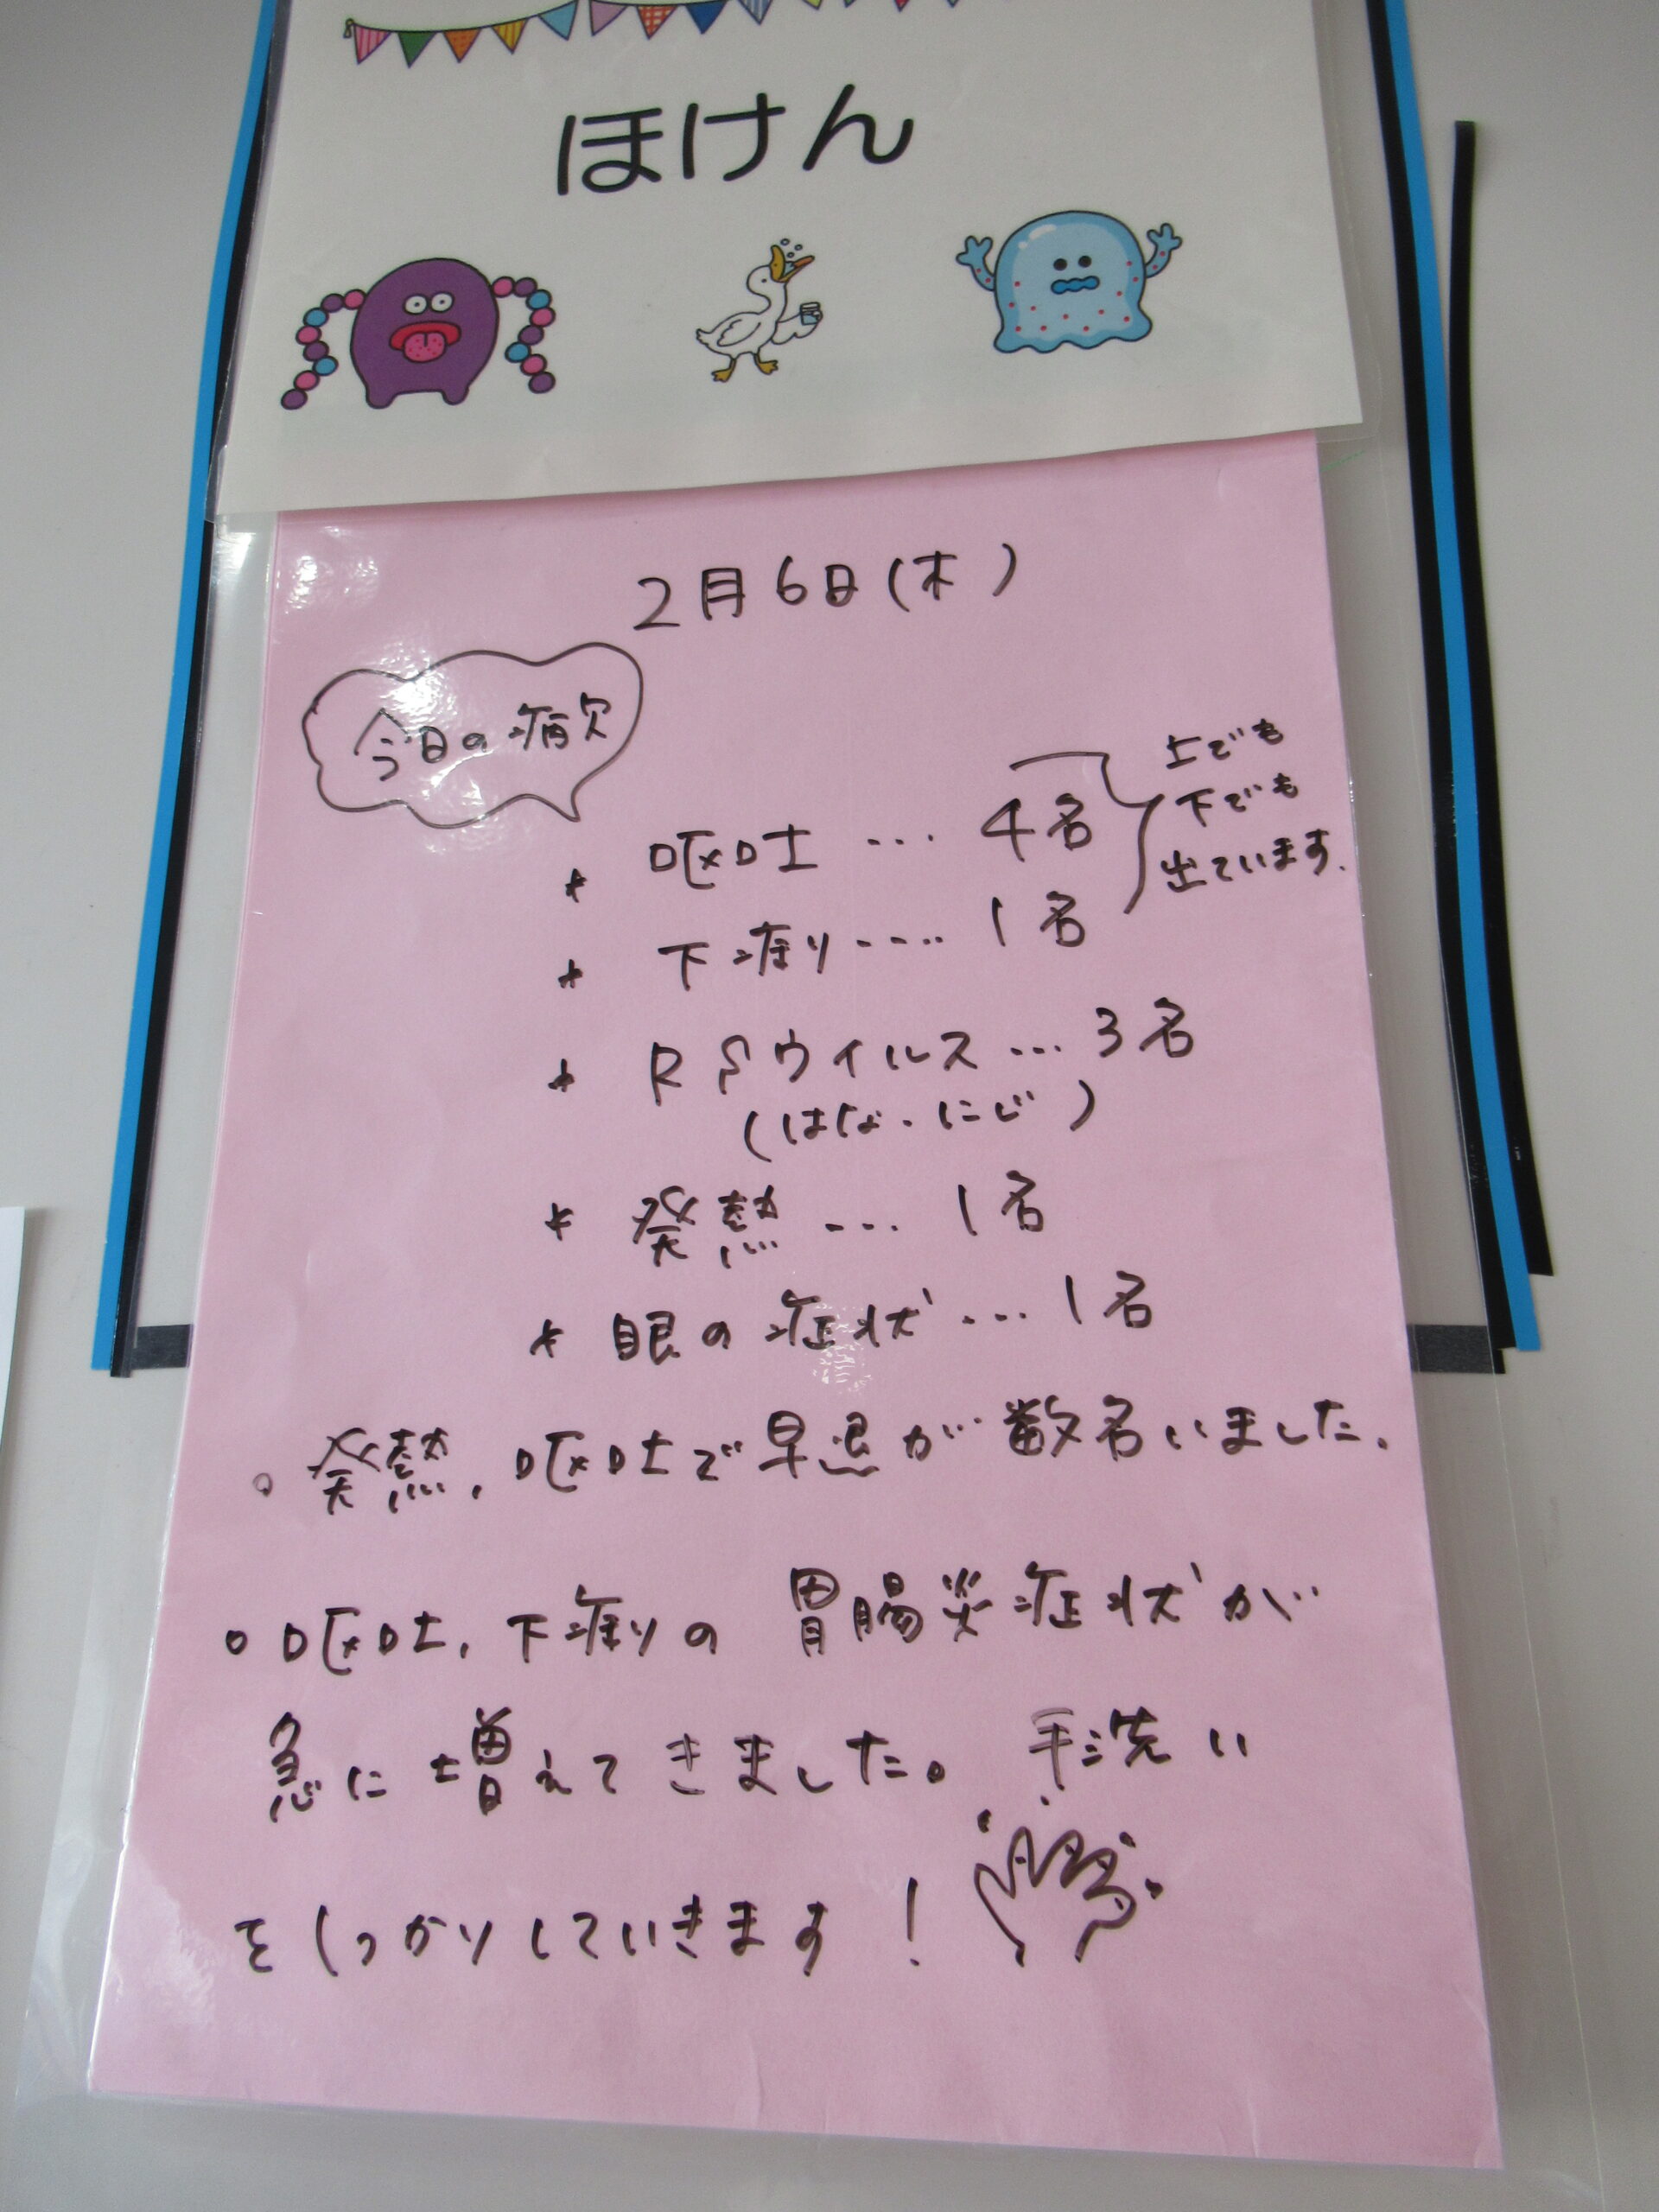 ほけん
2月6日(木)
今日の病欠
* 嘔吐 … 4名
* 下痢り ‥‥ 1名
上でも
下でも
出ています.
* RSウイルス … 3名
(はな・にじ)
* 発熱 … 1名
* 眼の症状 … 1名
○ 発熱、嘔吐で早退が数名いました.
○ 嘔吐、下痢りの 胃腸炎症状が
急に増えてきました。 手洗い
をしっかりしていきます!